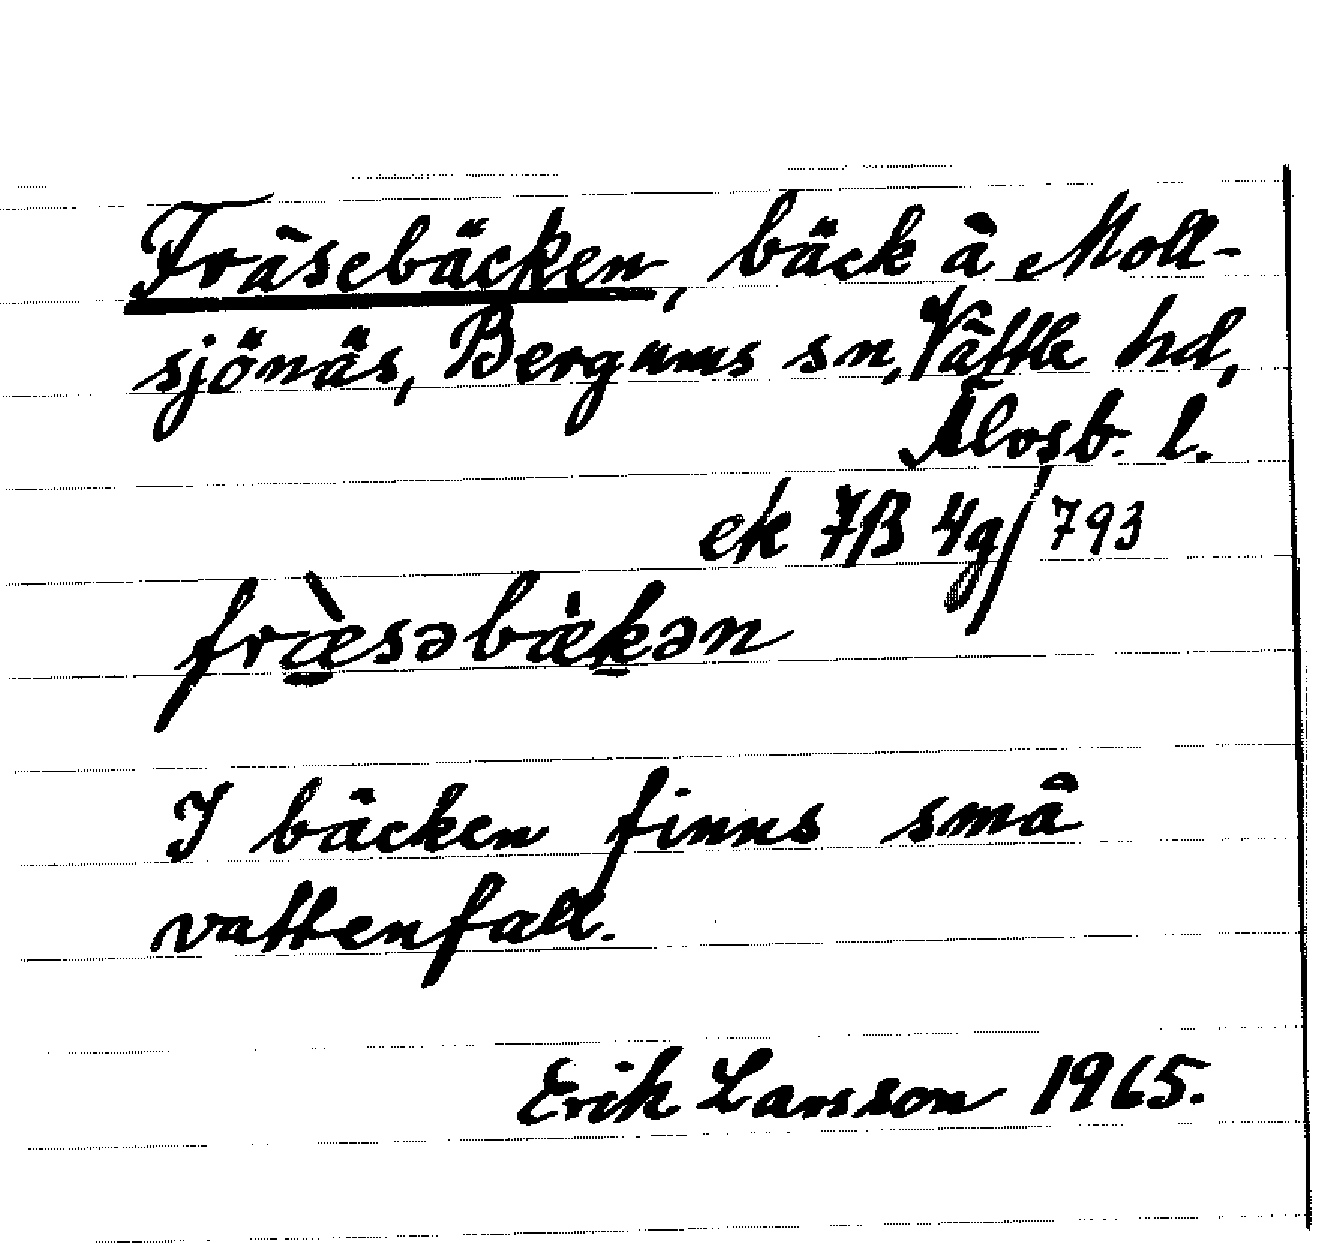 Fräsebäcken, bäck å Moll-
sjönäs, Bergums sn, Vättle hd,
Älvsb. l.
ek 7B 4g/793
fræ̀səbæ̀kən
I bäcken finns små
vattenfall.
Erik Larsson 1965.